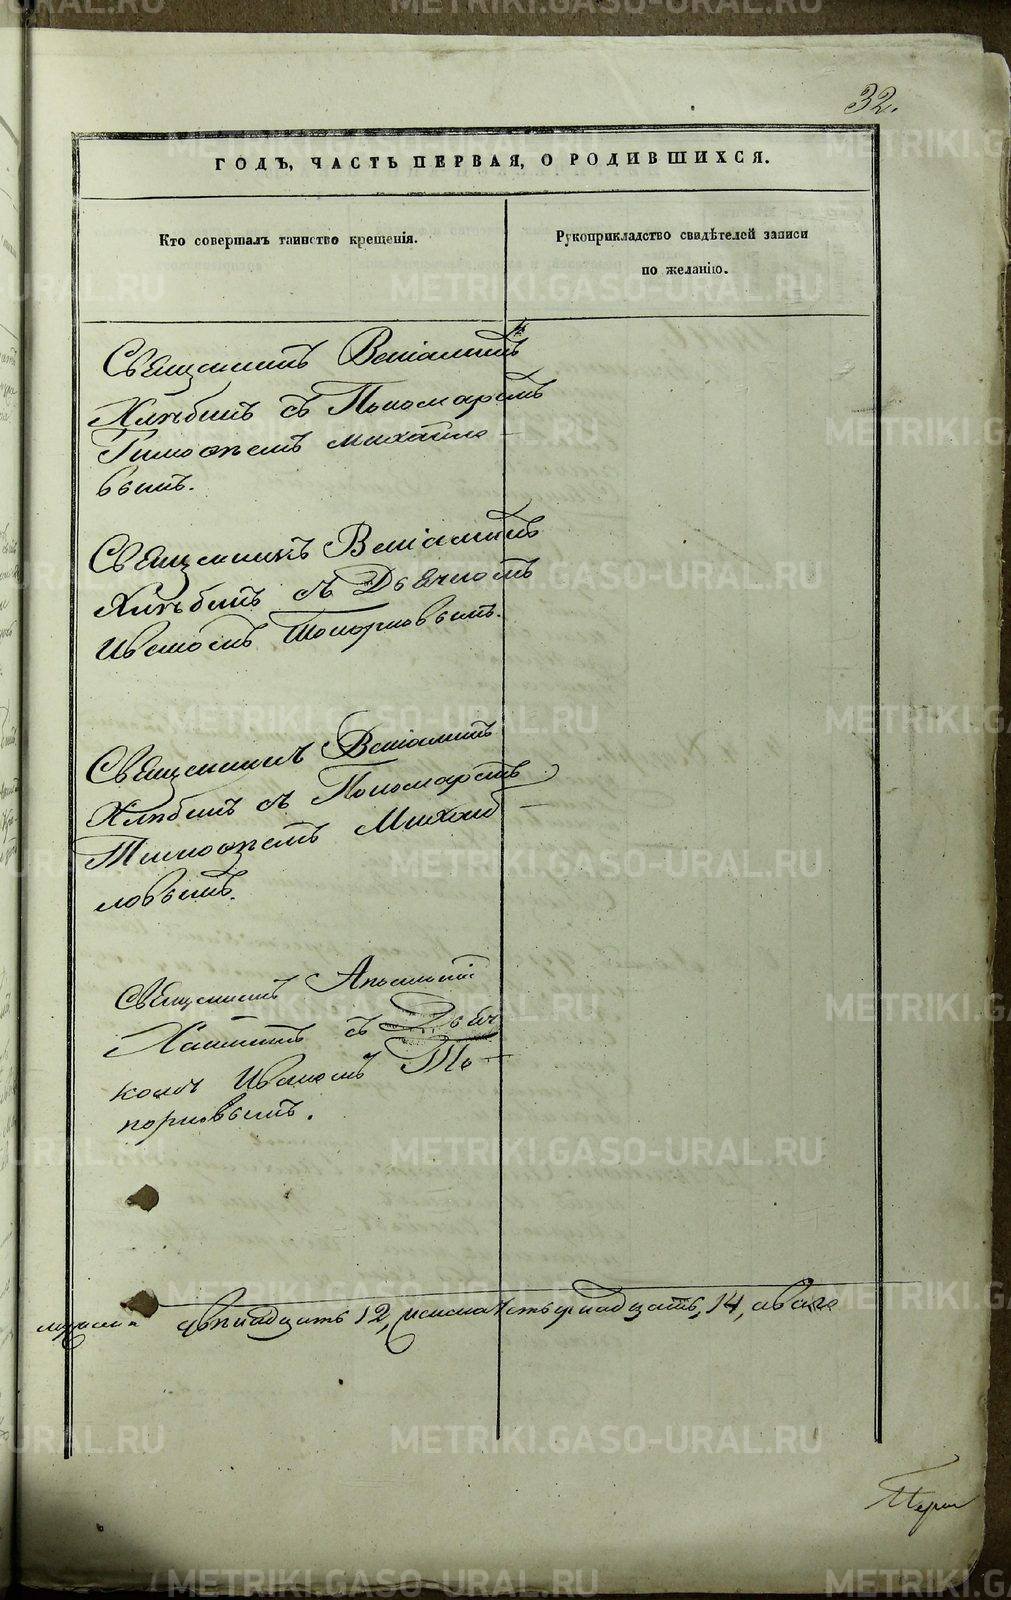 32.
ГОДЪ, ЧАСТЬ ПЕРВАЯ, О РОДИВШИХСЯ.
Кто совершалъ таинство крещенія.
Рукоприкладство свидѣтелей записи
по желанію.
Священникъ Веніаминъ
Хлѣбинъ съ Пономаремъ
Тимоѳеемъ Михайло-
вымъ.
Священникъ Веніаминъ
Хлѣбинъ съ Дьячкомъ
Иваномъ Топорковымъ.
Священникъ Веніаминъ
Хлѣбинъ съ Пономаремъ
Тимоѳеемъ Михай-
ловымъ.
Священникъ
съ Дьяч-
комъ Иваномъ То-
порковымъ.
двѣнадцать 12, женска четырнадцать, 14, обоего
METRIKI.GASO-URAL.RU